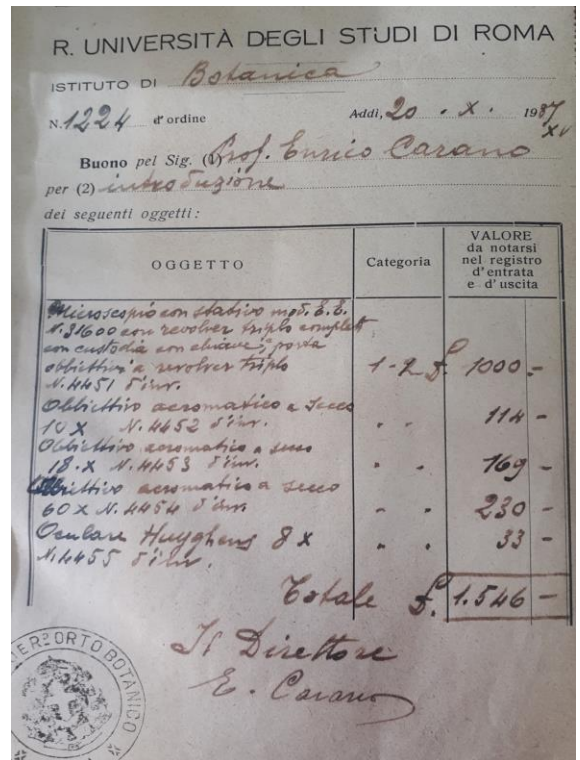 R. UNIVERSITÀ DEGLI STUDI DI ROMA
ISTITUTO DI Botanica
N. 1224 d'ordine Addì, 20 . X . 1937
XV
Buono pel Sig. (1) Prof. Enrico Carano
per (2) introduzione
dei seguenti oggetti:
OGGETTO Categoria VALORE da notarsi nel registro d'entrata e d'uscita
Microscopio con stativo mod. E. E.
N. 31600 con revolver triplo completo
con custodia con chiave; porta
obbiettivi a revolver triplo 1-2 £. 1000.-
N. 4451 d'inv.
Obbiettivo acromatico a secco
10 X N. 4452 d'inv. " " 114 -
Obbiettivo acromatico a secco
18. X N. 4453 d'inv. " " 169 -
Obbiettivo acromatico a secco
60 X N. 4454 d'inv. " " 230 -
Oculare Huyghens 8 X " " 33 -
N. 4455 d'inv.
Totale £. 1.546 -
Il Direttore
E. Carano
ORTO BOTANICO